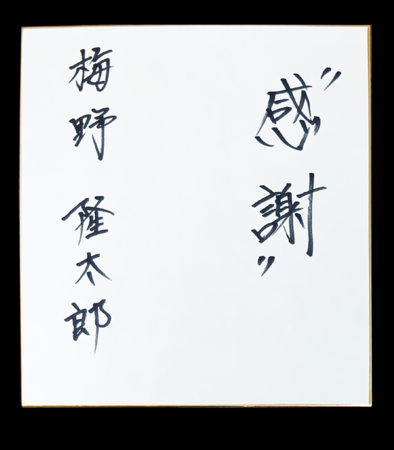 〃感謝〃
梅野 隆太郎